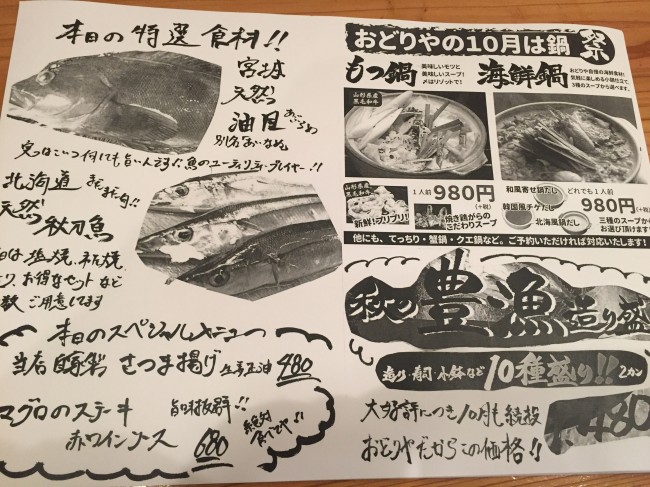 本日の特選食材!!
宮城
天然
油目
あぶらめ
別名あいなめ
実はこいつ何にしても旨いんです!!魚のユーティリティプレイヤー!!
北海道
天然
秋刀魚
塩焼
お得なセットなど
ご用意してます
本日のスペシャルメニュー
当店自家製 さつま揚げ 生姜正油 480
マグロのステーキ
赤ワインソース 680
旨味抜群!!
絶対
食べてや!!
おどりやの10月は鍋祭
もつ鍋
美味しいモツと
美味しいスープ!
〆はリゾットで!
海鮮鍋
おどりや自慢の海鮮食材!
3種のスープから選べます。
山形県産
黒毛和牛
山形県産
黒毛和牛
1人前 980円
(+税)
新鮮!プリプリ!
焼き鶏がらの
こだわりスープ
和風寄せ鍋だし
どれでも1人前
韓国風チゲだし
980円
(+税)
北海風鍋だし
三種のスープから
お選び頂けます
他にも、てっちり・蟹鍋・クエ鍋など。ご予約いただければ対応いたします!
秋の豊漁造り盛
造り・寿司・小鉢など10種盛り!! 2カン
大好評につき10月も続投
おどりやだからこの価格!!
480